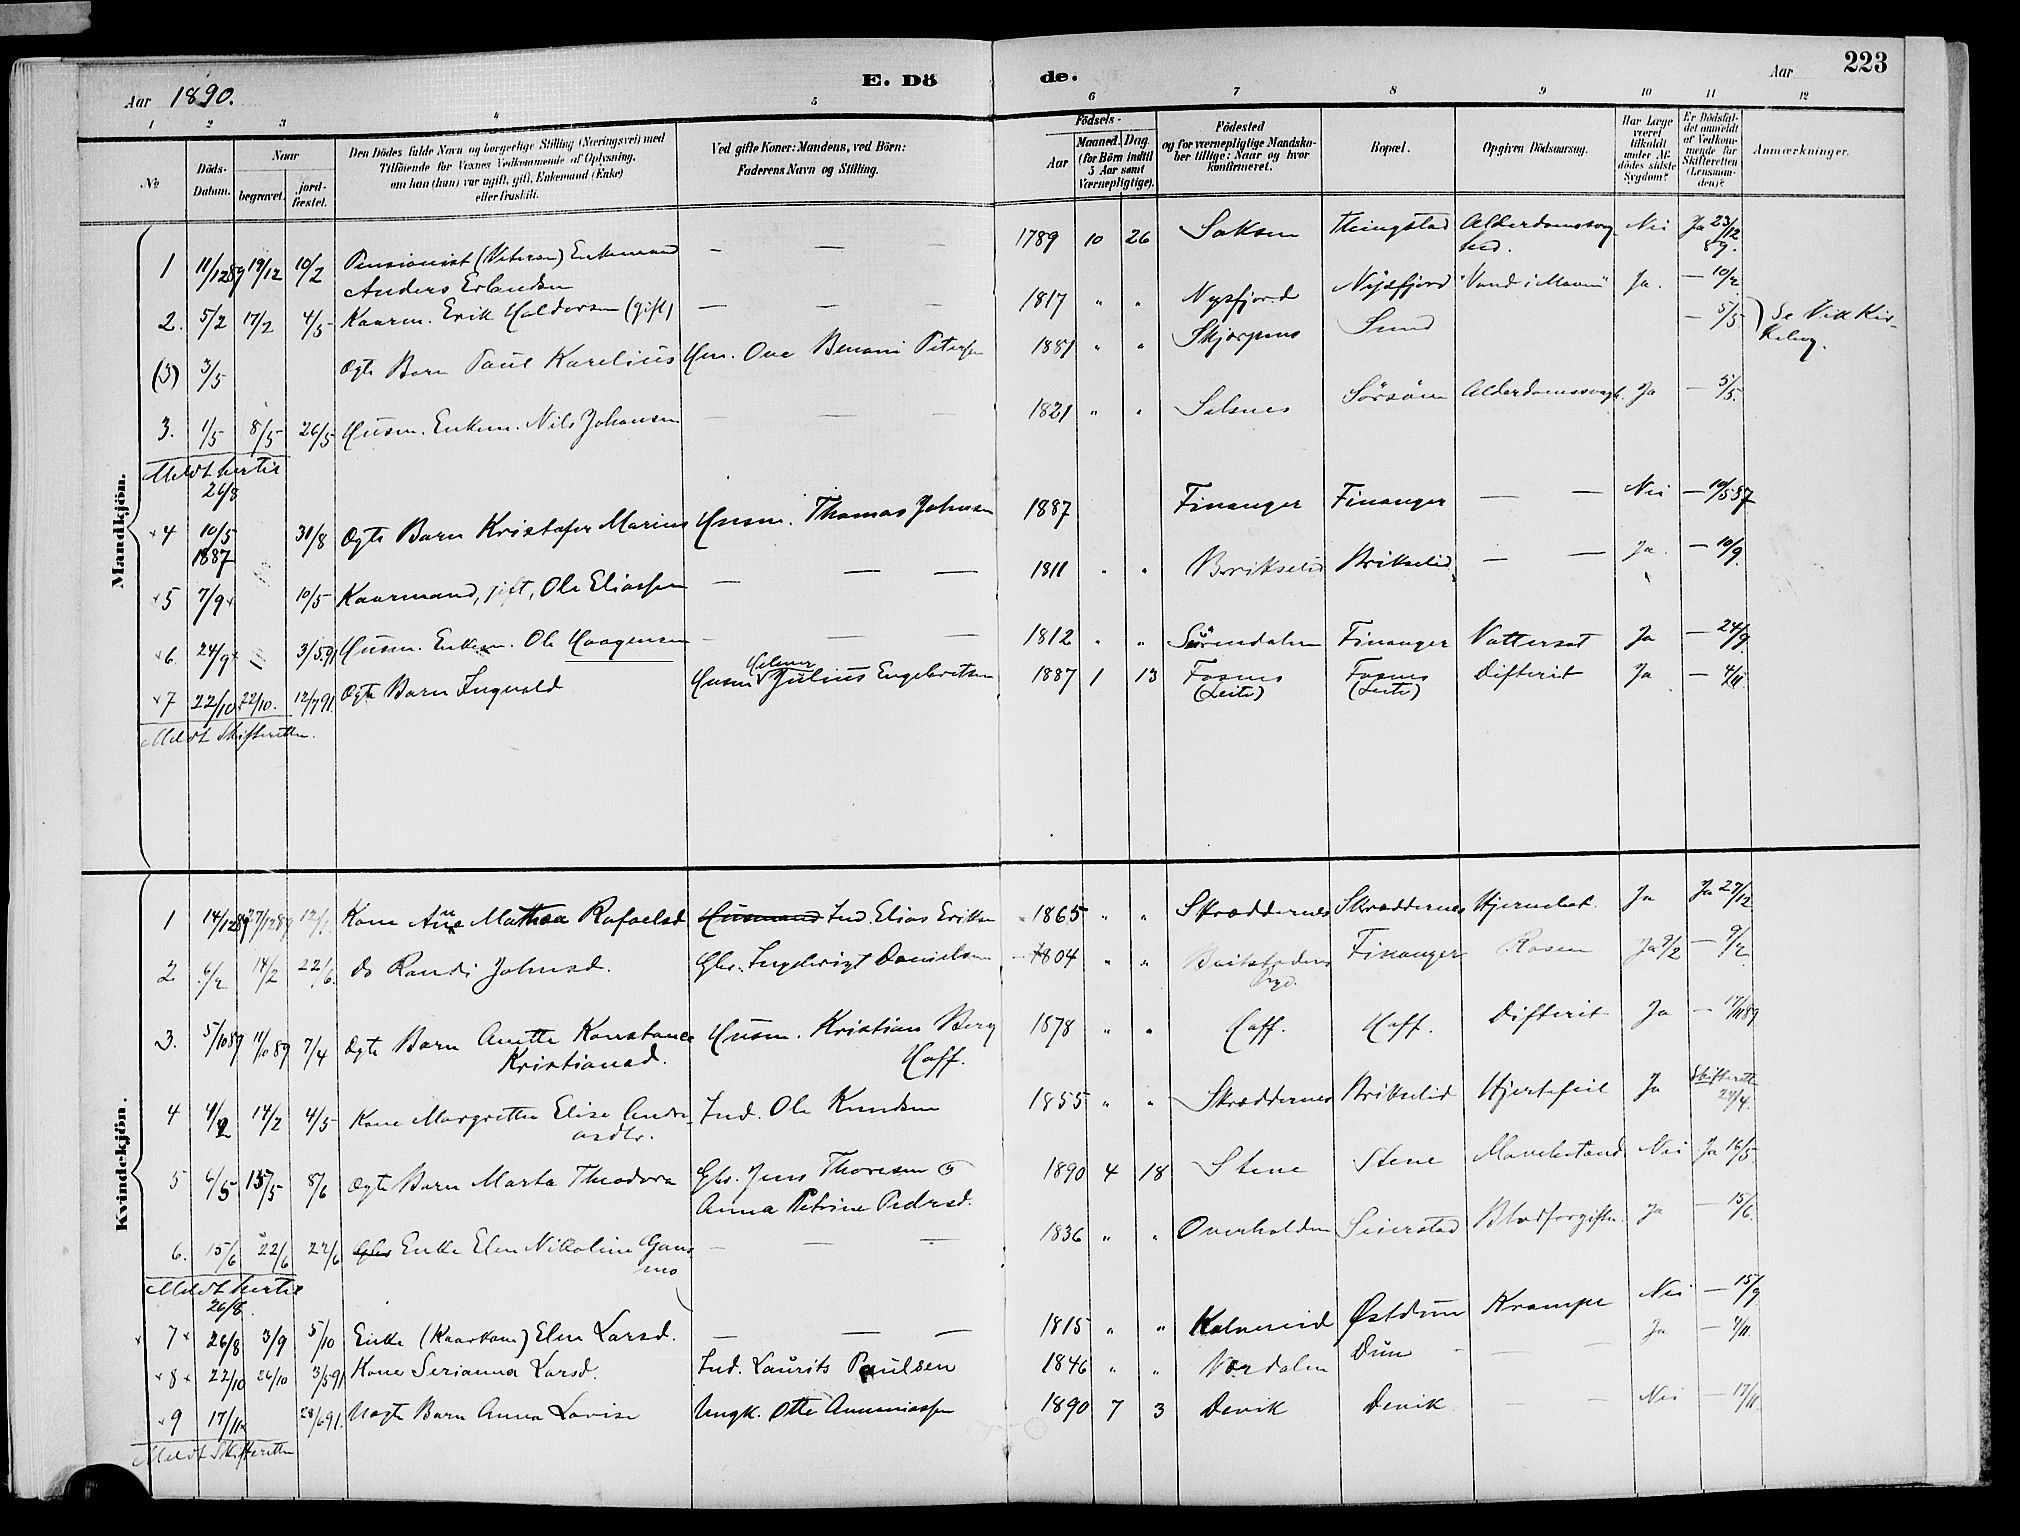 Aar 1890.
E. Dö de.
Aar
223
1 2 3 4 5 6 7 8 9 10 11 12
No
Döds-Datum.
Naar
begravet.
jord-fæstet.
Den Dödes fulde Navn og borgerlige Stilling (Næringsvei) med
Tilföiende for Voxnes Vedkommende af Oplysning,
om han (hun) var ugift, gift, Enkemand (Enke)
eller fraskilt.
Ved gifte Koner: Mandens, ved Börn:
Faderens Navn og Stilling.
Födsels-
Aar
Maaned. Dag.
(for Börn indtil
5 Aar samt
Værnepligtige).
Födested
og for værnepligtige Mandska-
ber tillige: Naar og hvor
konfirmeret.
Bopæl.
Opgiven Dödsaarsag.
Har Læge
været
tilkaldt
under Af-
dödes sidste
Sygdom?
Er Dödsfal-
det anmeldt
af Vedkom-
mende for
Skifteretten
(Lensman-
den)?
Anmærkninger.
Mandkjön.
1 11/12 89 19/12 10/2 Pensionist (Veteran) Enkemand — — — 1789 10 26 Saksen Thingstad Alderdomssvag- Nei Ja 23/12
Anders Erlandsen hed. 89.
2. 5/2 17/2 4/5 Kaarm. Erik Haldorsen (gift) — — — 1817 " " Nysfjord Nysfjord "Vand i Maven" Ja. — 10/2
(3) 3/5 Ægte Barn Paul Karelius Gm. Ove Benoni Petersen 1881 " " Skjærpenes Sund — 5/5. Se Vik Kir-
kebog.
3. 1/5 8/5 26/5 Husm. Enkem. Nils Johansen — — — 1821 " " Salsnes Sörsöen Alderdomssvagh. Ja — 5/5.
Meldt hertil
26/8
×4 10/5 31/8 Ægte Barn Kristofer Marius Husm. Thomas Johnsen 1887 Finanger Finanger — — Nei — 10/5 87
1887
×5 7/9× 10/5 Kaarmand, gift, Ole Eliassen — — — 1811 " " Brikselid Brikselid — — Ja. — 10/9.
×6 24/9× 3/5 91 Husm. Enkem. Ole Haagensen — — 1812 " " Sörendalen Finanger Vattersot Ja — 24/9
×7 22/10 22/10. 12/7 91. Ægte Barn Ingvald Husm Helmer Julius Engebretsen 1887 1 13 Fosnes Fosnes Difterit Ja — 4/11.
(Leite) (Leite)
Meldt Skifteretten.
Kvindekjön.
1 14/12 89 27/12 89 12/1 Kone Ane Mathea Rafaelsd Husmand Ind. Elias Eriksen 1865 " " Skræddernes Skræddernes Hjernebet. Ja Ja 27/12
2 6/2 14/2 22/6. do Randi Johnsd. Gbr. Ingebrigt Danielsen 1804 " " Beitstadens Finanger Rosen Ja 9/2 — 9/2
Prgd.
3. 5/10 89 11/10 89 7/4 Ægte Barn Anette Konstance Husm. Kristian Berg 1878 " " Hoff. Hoff. Difterit Ja — 17/11 89
Kristiansd. Hoff.
4 4/2 14/2 4/5 Kone Margrethe Elise Andre- Ind. Ole Knudsen 1855 " " Skræddernes Brikselid Hjertefeil Ja Skifterett
asdtr. 24/4.
5 6/5 15/5 8/6 Ægte Barn Marta Theodora Gbr. Jens Thoresen & 1890 4 18 Stene Stene Mavebetænd Nei Ja 16/5.
Anna Petrine Pedersd.
6. 15/6 22/6 22/6 Gbr Enke Elen Nikoline Gans- — — — 1836 " " Overhalden Seierstad Blodforgiftn. Ja — 15/6.
mo
Meldt hertil
26/8.
× 7× 26/8 3/9 5/10 Enke (Kaarkone) Elen Larsd. — — — 1815 " " Kalvereid Østduun Krampe Nei — 15/9
×8× 22/10 26/10 3/5 91 Kone Serianna Larsd. Ind. Laurits Paulsen 1846 " " Værdalen Duun — — — Ja — 4/11.
×9 17/11× 28/6 91. Uægte Barn Anna Lovise Ungk. Otte Annaniassen 1890 7 3 Devik Devik — — Nei — 17/11
Meldt Skifteretten